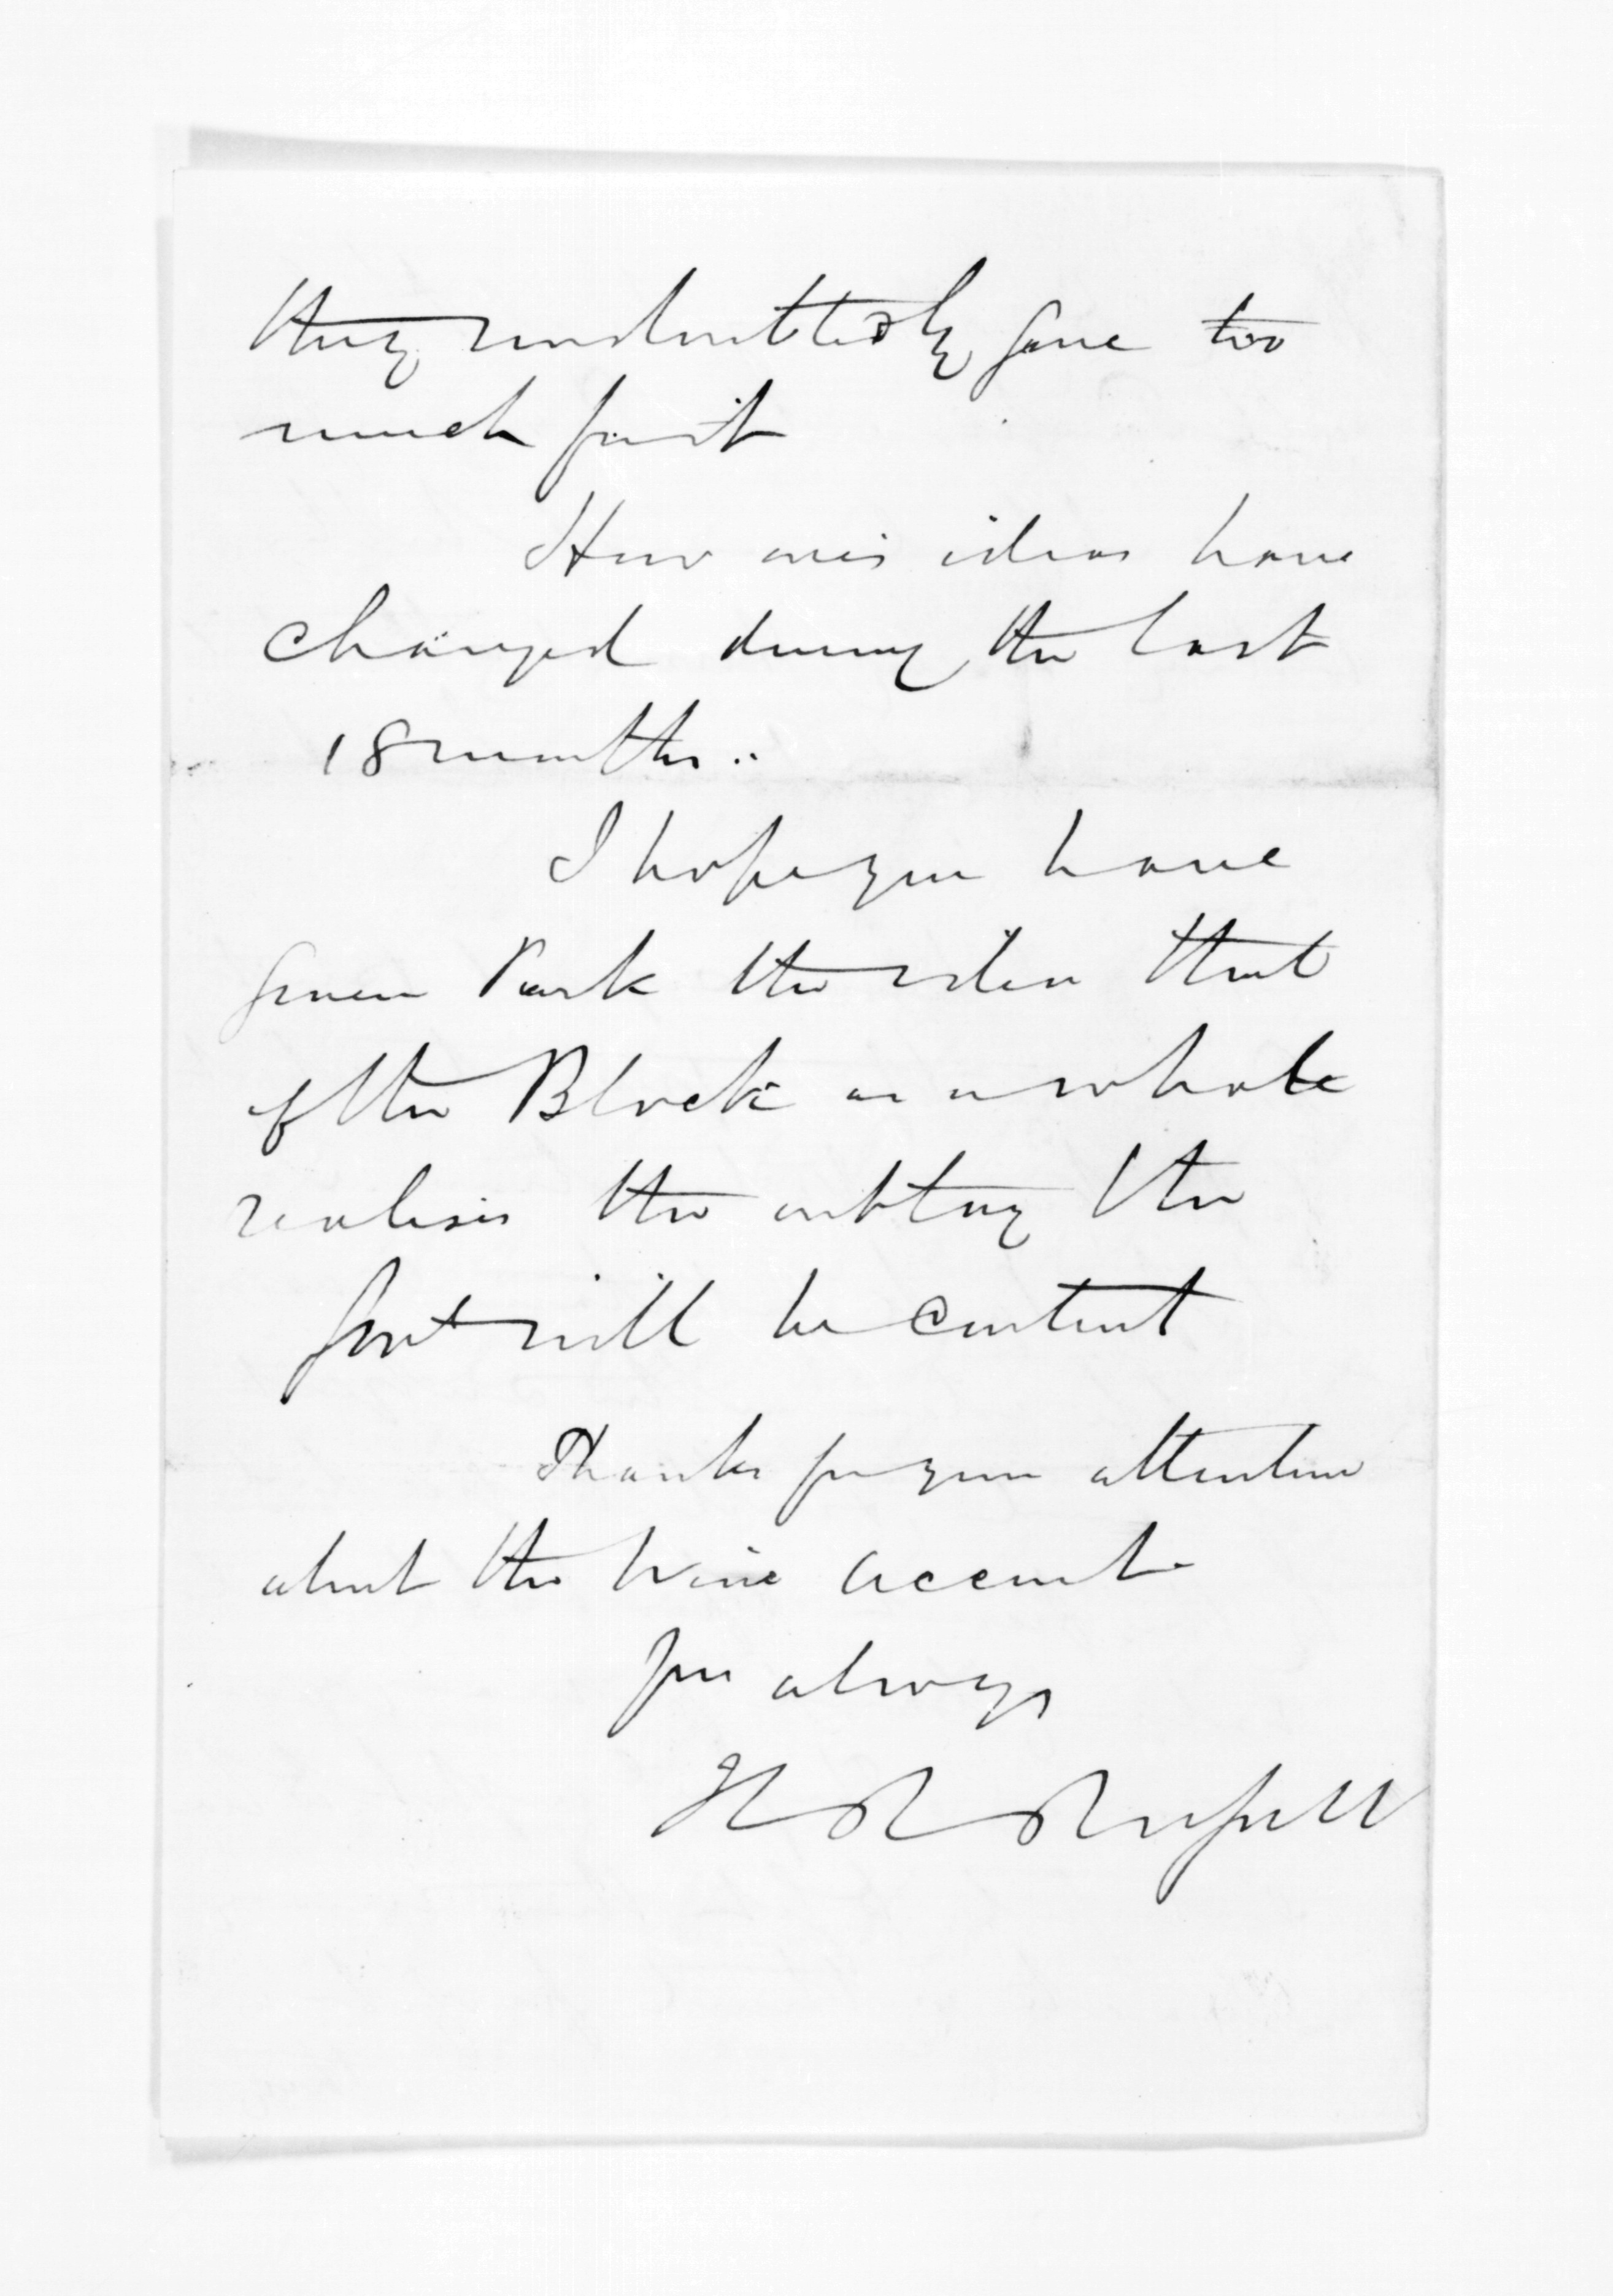 they undoubtedly gave too
much for it
How one's ideas have
changed during the last
18 months..
I hope you have
given Park the idea that
if the Block as a whole
realises the outlay the
Govt will be content
Thanks for your attention
about the Wine account
Yrs always
H R Russell